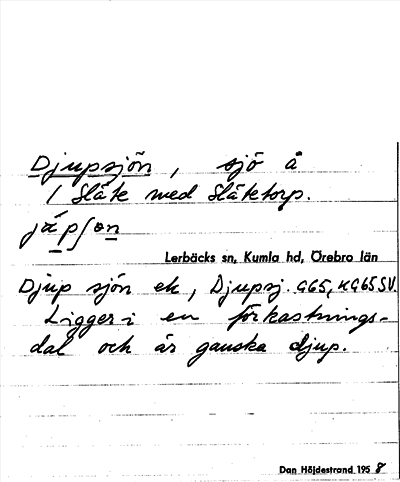 Djupsjön, sjö å
1 Släte med Slätetorp.
Lerbäcks sn, Kumla hd, Örebro län
Djup sjön ek, Djupsj. G65, HG65 SV.
Ligger i en förkastnings-
dal och är ganska djup.
Dan Höjdestrand 1958